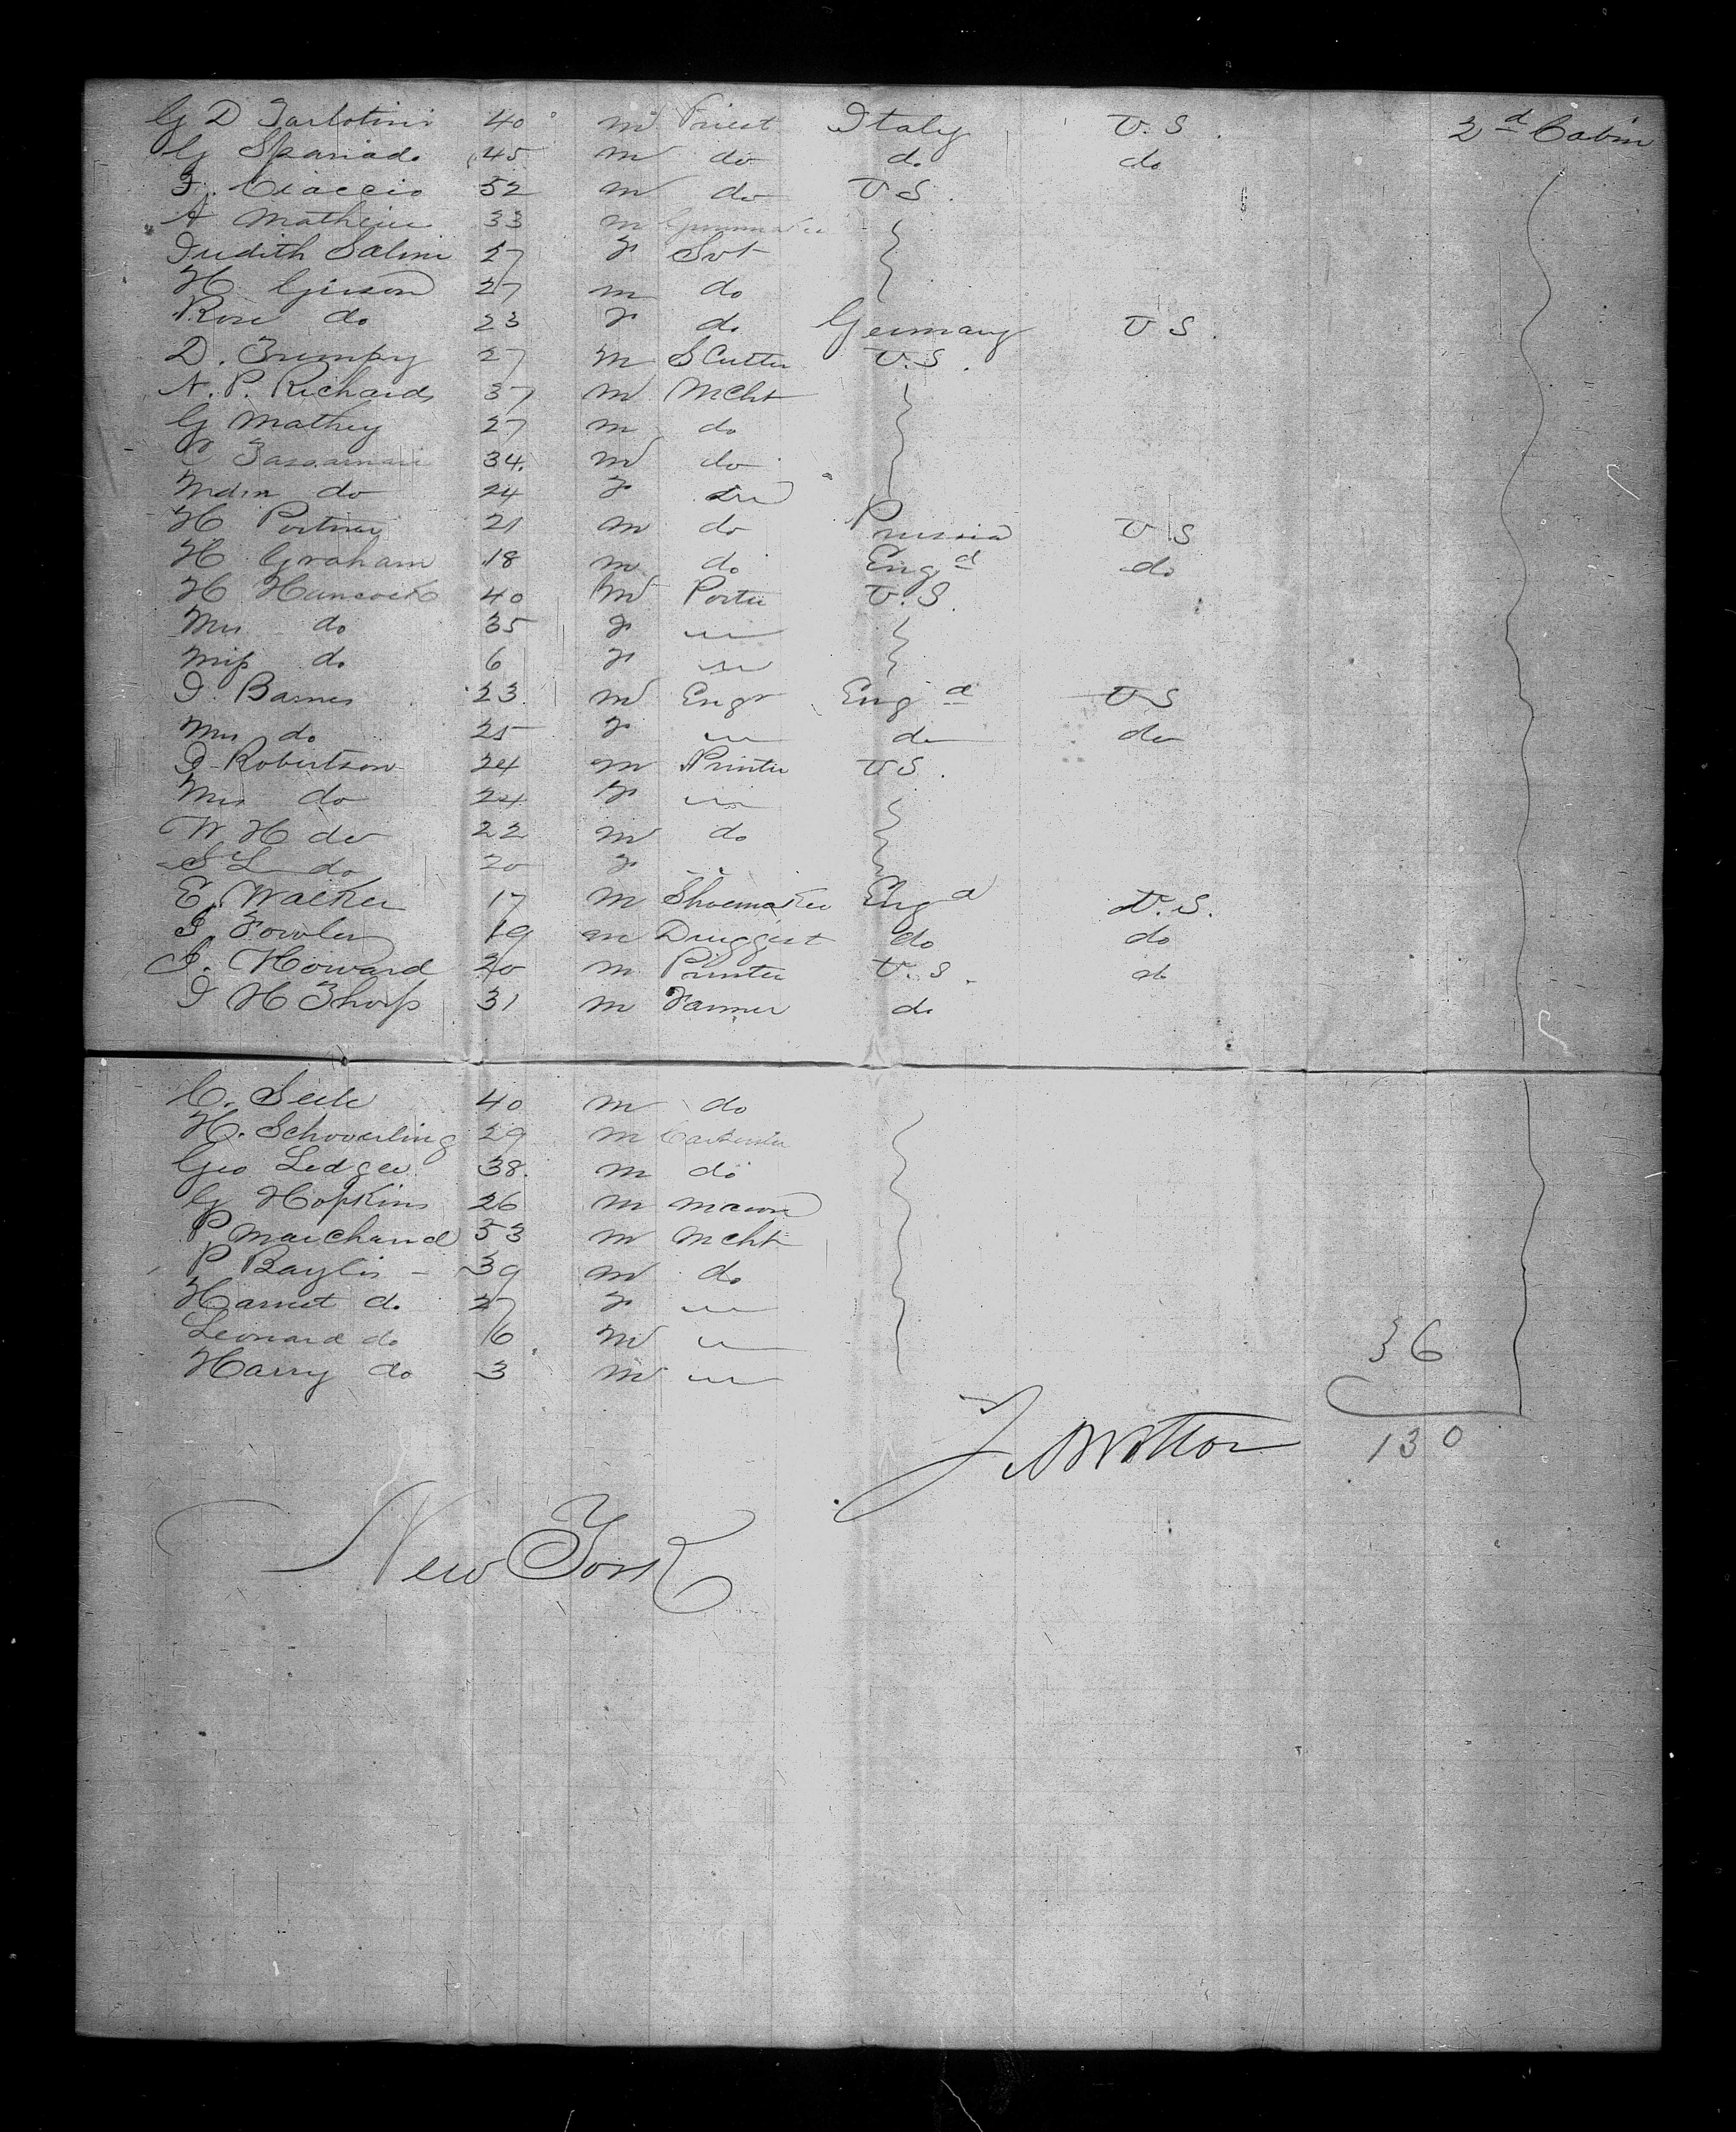 G D Tarlotini 40 m Priest Italy U.S. 2d Cabin
G Spaniado 45 m do do do
F. Ciaccio 52 m do U S.
A Mathieu 33 m
Judith Salini 27 F Svt
H. Girson 27 m do
Rose do 23 F do Germany U S.
D. Trumpy 27 m S Cutter U.S.
N. P. Richards 37 m Mcht
G Mathey 27 m do
34. m do
Mdm do 24 F
H Portner 21 m do Prussia U S
H Graham 18 m do Engd do
H Hancock 40 m Porter U.S.
Mrs do 35 F
Miss do 6 F
J. Barnes 23. m Engr Engd U S
Mrs do 25 F do do
J. Robertson 24 m Printer U S.
Mrs do 24 F
W H do 22 m do
S L do 20 F
E. Walker 17 m Shoemaker Engd U.S.
J. Fowler 19 m Druggist do do
J. Howard 20 m Printer U.S. do
J H Thorp 31 m Farmer do
C. Seele 40 m do
H. Schoverling 29 m Carpenter
Geo Ledger 38. m do
G Hopkins 26 m mason
P. Marchand 53 m Mcht
P Baylis - 39 m do
Harriet do 27 F
Leonard do 6 m
Harry do 3 m
36
130
New York